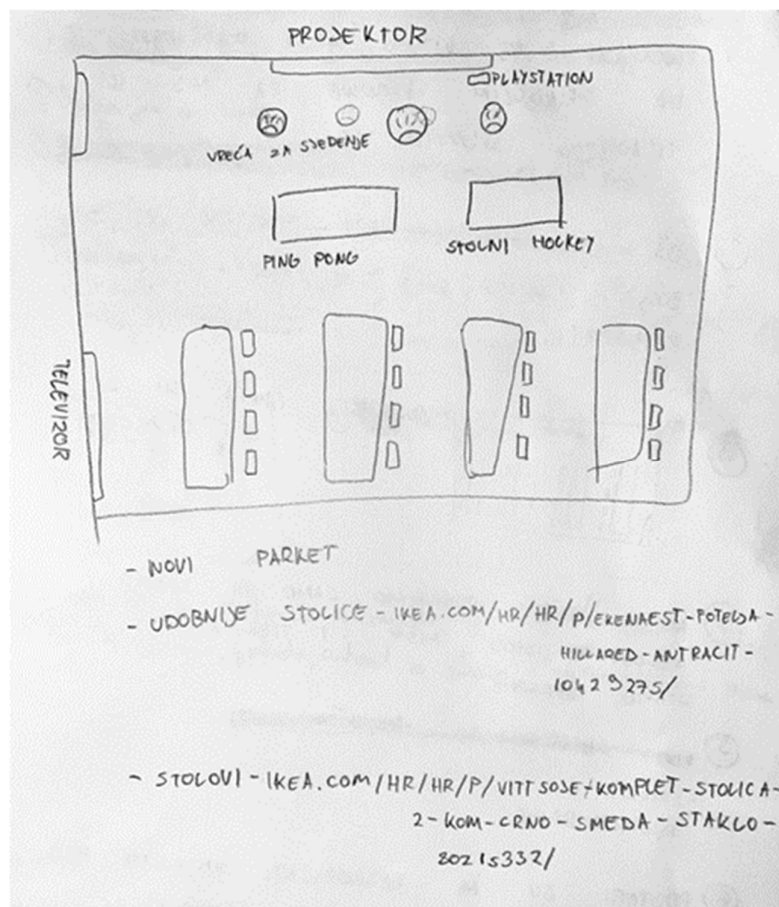 PROJEKTOR
PLAYSTATION
VREĆA ZA SJEDENJE
PING PONG
STOLNI HOCKEY
TELEVIZOR
- NOVI PARKET
- UDOBNIJE STOLICE - IKEA.COM/HR/HR/P/EKENAEST-POTELJA-
HILLARED-ANTRACIT-
10429275/
- STOLOVI - IKEA.COM/HR/HR/P/VITTSOJE-KOMPLET-STOLICA-
2-KOM-CRNO-SMEDA-STAKLO-
80215332/